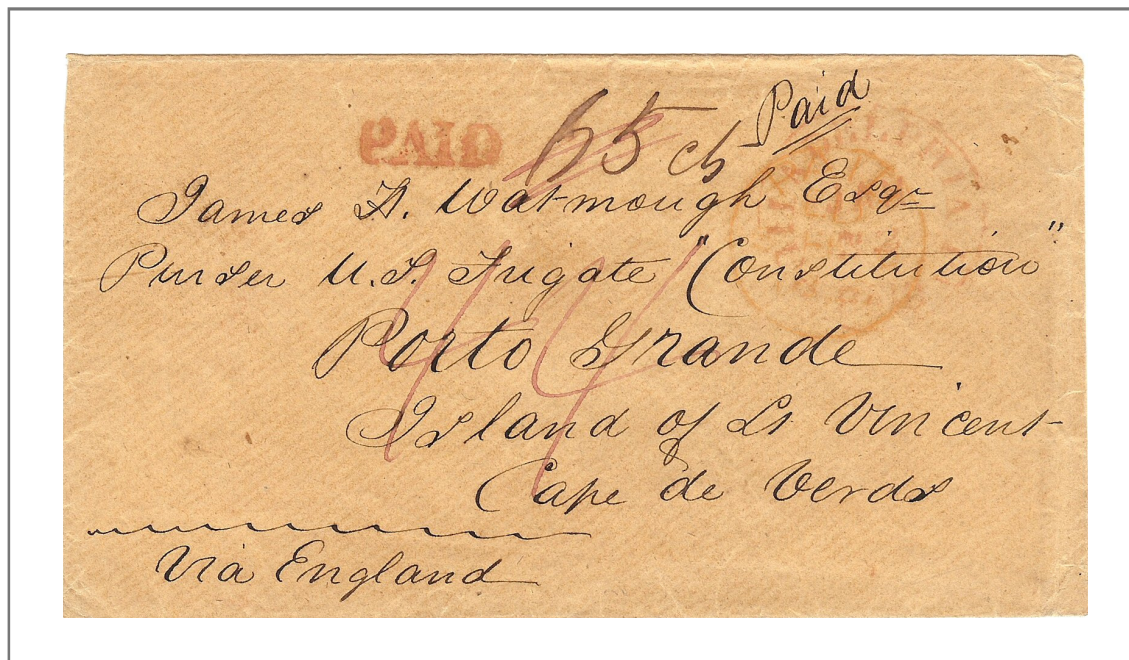 Paid
65 cts
PAID
James H. Watmough Esqr
Purser U.S. Frigate "Constitution"
Porto Grande
Island of St Vincent
Cape de Verds
Via England